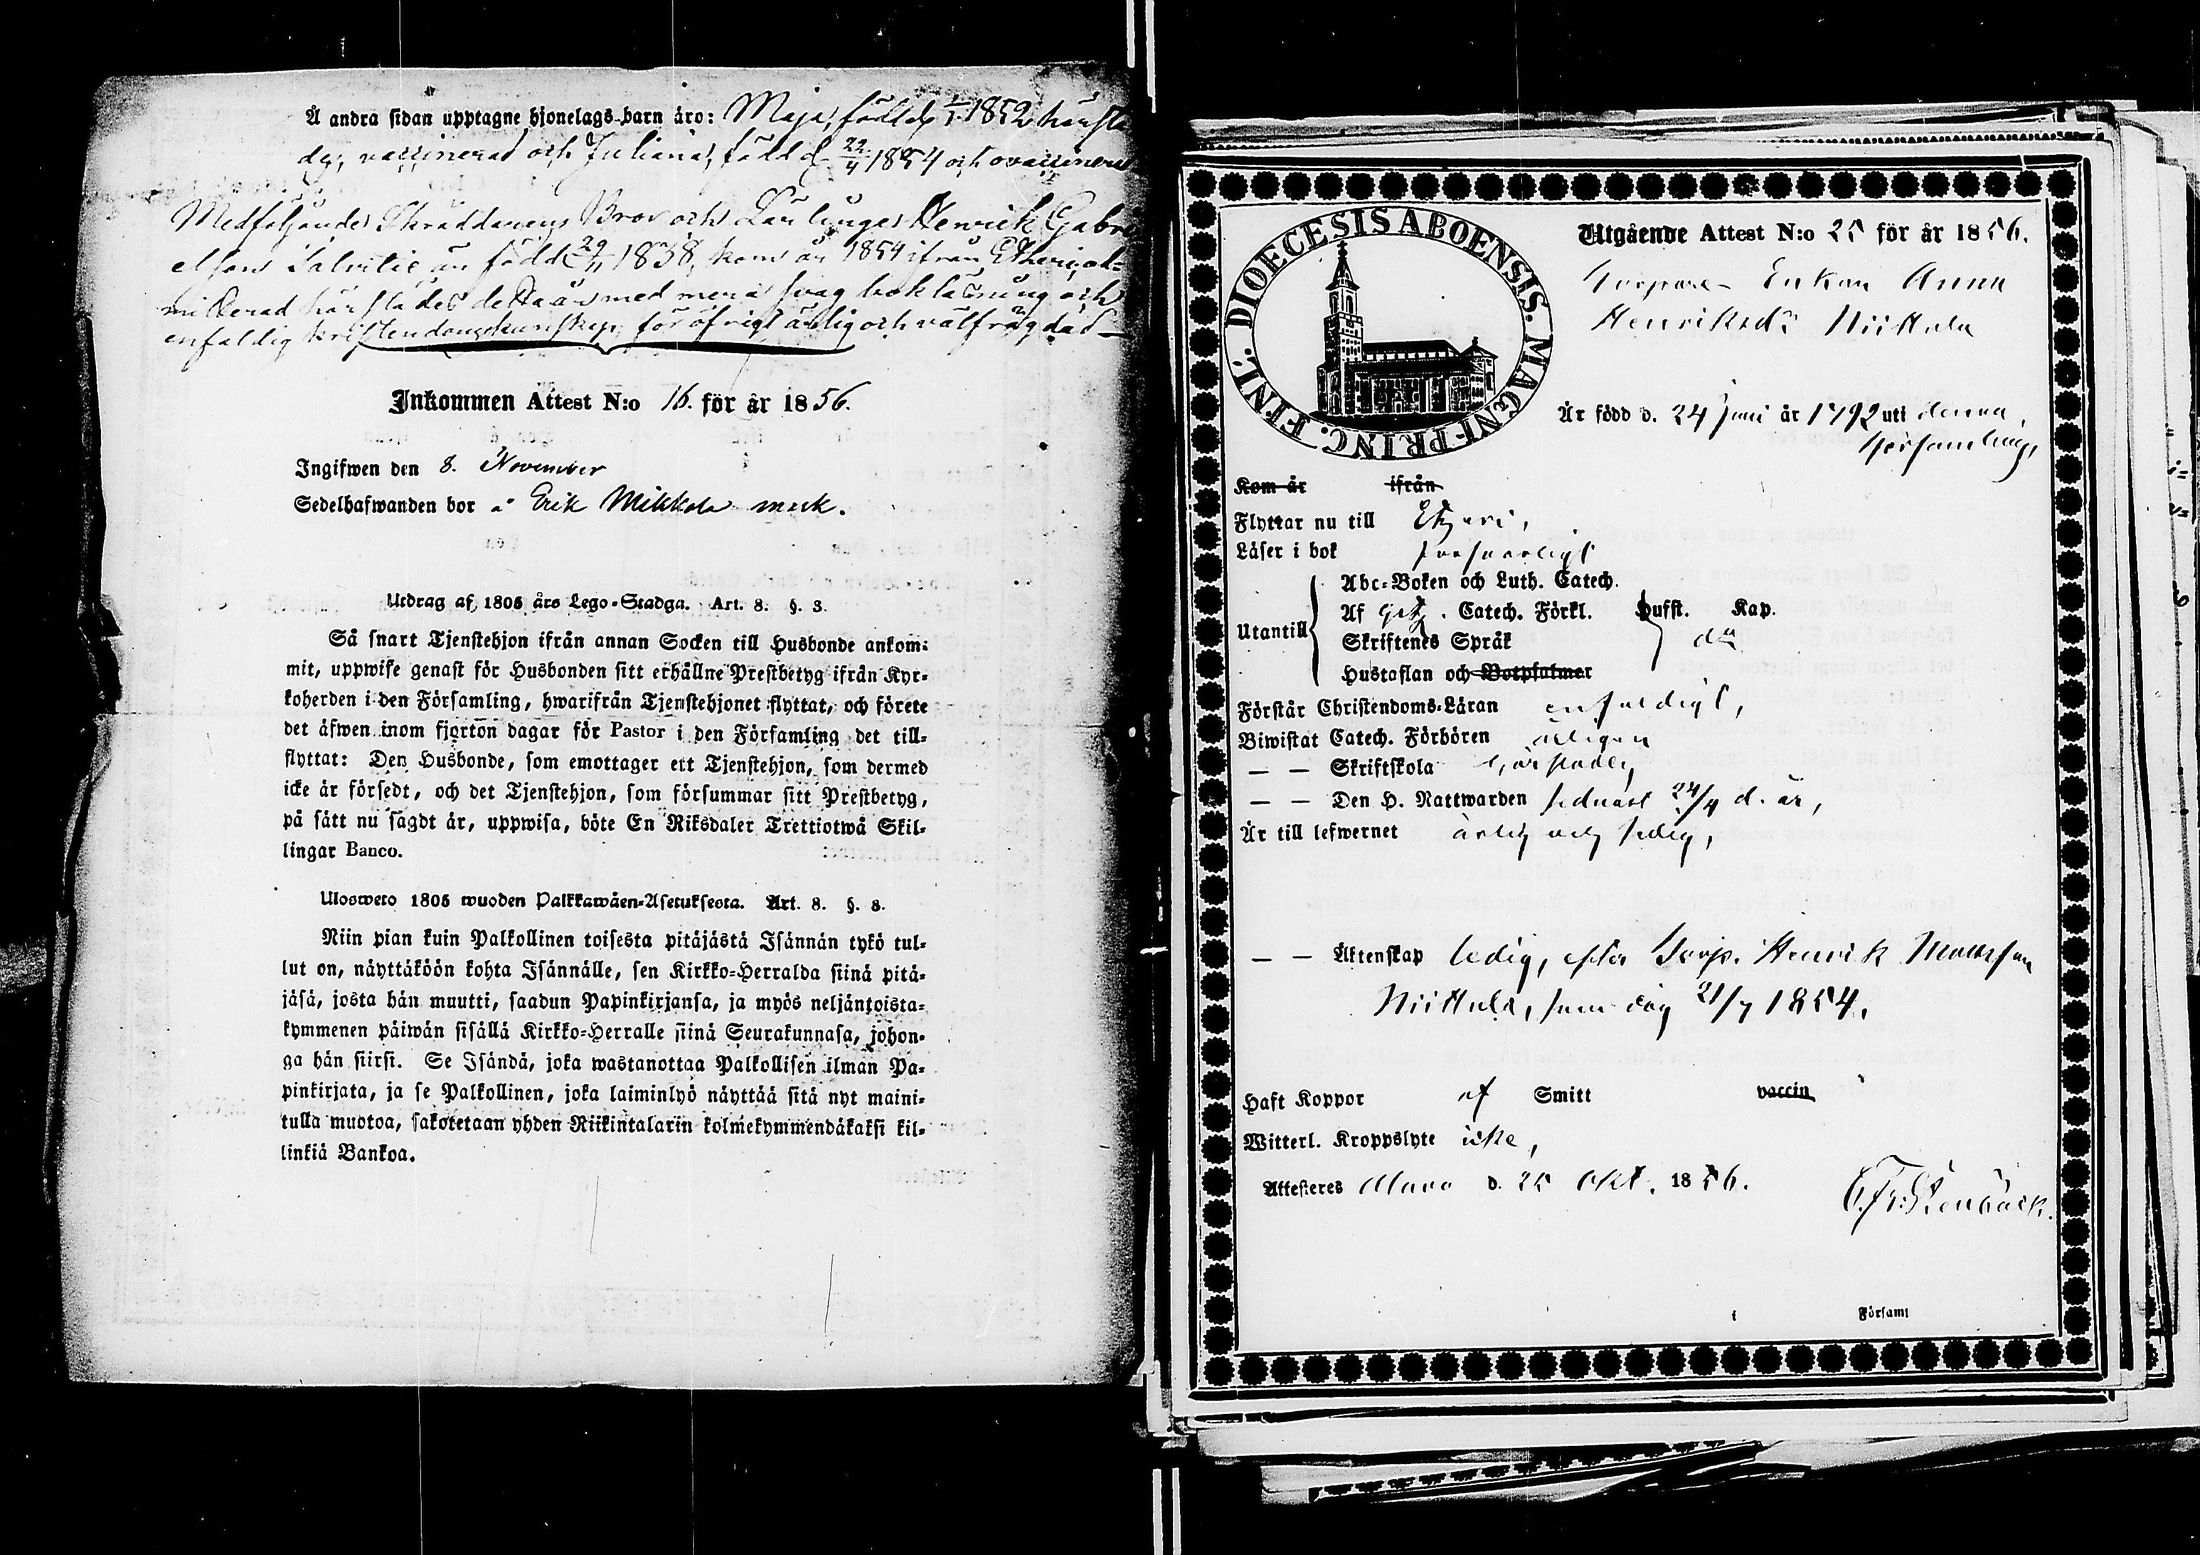 Å andra sidan upptagne hjonelags-barn äro: Maja, född d. 1/1 1852 härstä
dg, vaccinerad och Juliana, född d. 22/4 1854 och ovaccinera
Medföljande Skräddarens Bror och Lärlinge Henrik Gabri
elsson född 29/11 1838, kom år 1854 ifrån Etseri, ad-
mitterad härstädes detta år med mera svag bokläsning och
enfaldig kristendomskunskap, för öfrigt ärlig och välfrägdad
Inkommen Attest N:o 16. för år 1856.
Ingifwen den 8. November
Sedelhafwanden bor å Erik Mikkola mark.
Utdrag af 1805 års Lego-Stadga. Art. 8. §. 3.
Så snart Tjenstehjon ifrån annan Socken till Husbonde ankom-
mit, uppwise genast för Husbonden sitt erhållne Prestbetyg ifrån Kyr-
koherden i den Församling, hwarifrån Tjenstehjonet flyttat, och förete
det äfwen inom fjorton dagar för Pastor i den Församling det till-
flyttat: Den Husbonde, som emottager ett Tjenstehjon, som dermed
icke är försedt, och det Tjenstehjon, som försummar sitt Prestbetyg,
på sätt nu sagdt är, uppwisa, böte En Riksdaler Trettiotwå Skil-
lingar Banco.
Uloswето 1805 wuoden Palkkawäen-Asetuksesta. Art. 8. §. 3.
Niin pian kuin Palkollinen toisesta pitäjästä Isännän tykö tul-
lut on, näyttäköön kohta Isännälle, sen Kirkko-Herralda siinä pitä-
jäsä, josta hän muutti, saadun Papinkirjansa, ja myös neljäntoista-
kymmenen päiwän sisällä Kirkko-Herralle siinä Seurakunnasa, johon-
ga hän siirsi. Se Isändä, joka wastanottaa Palkollisen ilman Pa-
pinkirjata, ja se Palkollinen, joka laiminlyö näyttää sitä nyt maini-
tulla muotoa, sakotetaan yhden Riikintalarin kolmekymmendäkaksi kil-
linkiä Bankoa.
DIOECESIS ABOENSIS. MAGNI PRINC. FINL.
Utgående Attest N:o 25 för år 1856.
Torpare-Enkan Anna
Henriksdr Niittula
Är född d. 24 Juni år 1792 uti denna
församling,
Kom år ifrån
Flyttar nu till Etseri,
Läser i bok försvarligt
Utantill
Abc-Boken och Luth. Catech.
Af Getz. Catech. Förkl. Hufst. Kap.
Skriftenes Språk do
Hustaflan och Botpsalmer
Förstår Christendoms-Läran enfaldigt,
Biwistat Catech. Förhören årligen
— — Skriftskola härstädes
— — Den H. Nattwarden sednast 24/4 d. år,
Är till lefwernet ärlig och sedig,
— — Äktenskap ledig, efter Torp. Henrik Mattsson
Niittula, som dog 21/7 1854.
Haft Koppor af Smitt vaccin
Witterl. Kroppslyte icke,
Attesteres Alavo d. 25 Okt. 1856.
C. Fr. Stenbäck.
i Församl